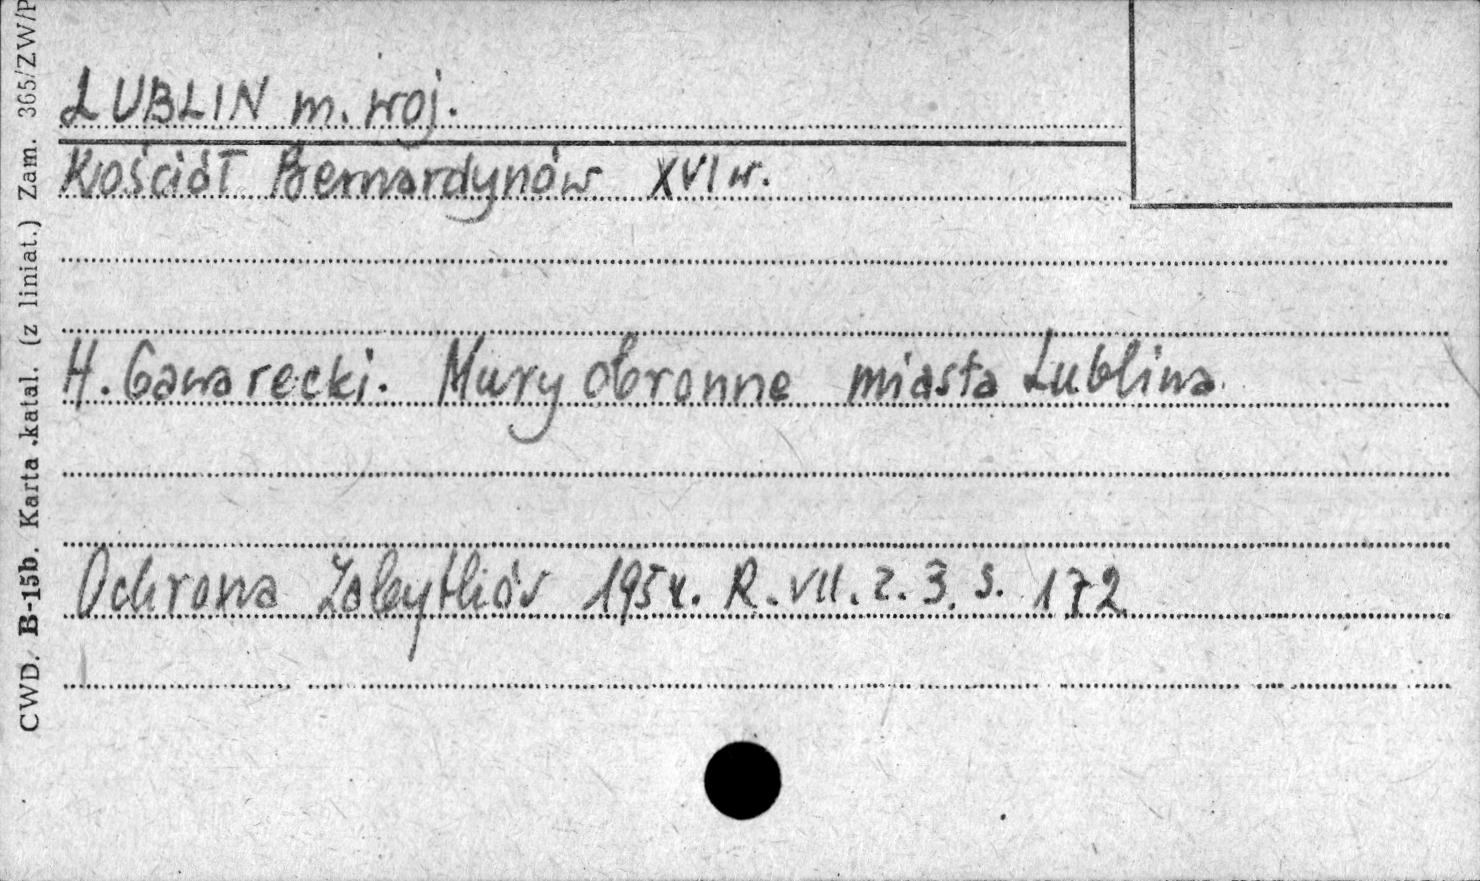 LUBLIN m. woj.
Kościół Bernardynów XVI w.
H. Gawarecki. Mury obronne miasta Lublina
Ochrona Zabytków 1954. R. VII. z. 3. s. 172
CWD. B-15b. Karta katal. (z liniat.) Zam. 365/ZW/P